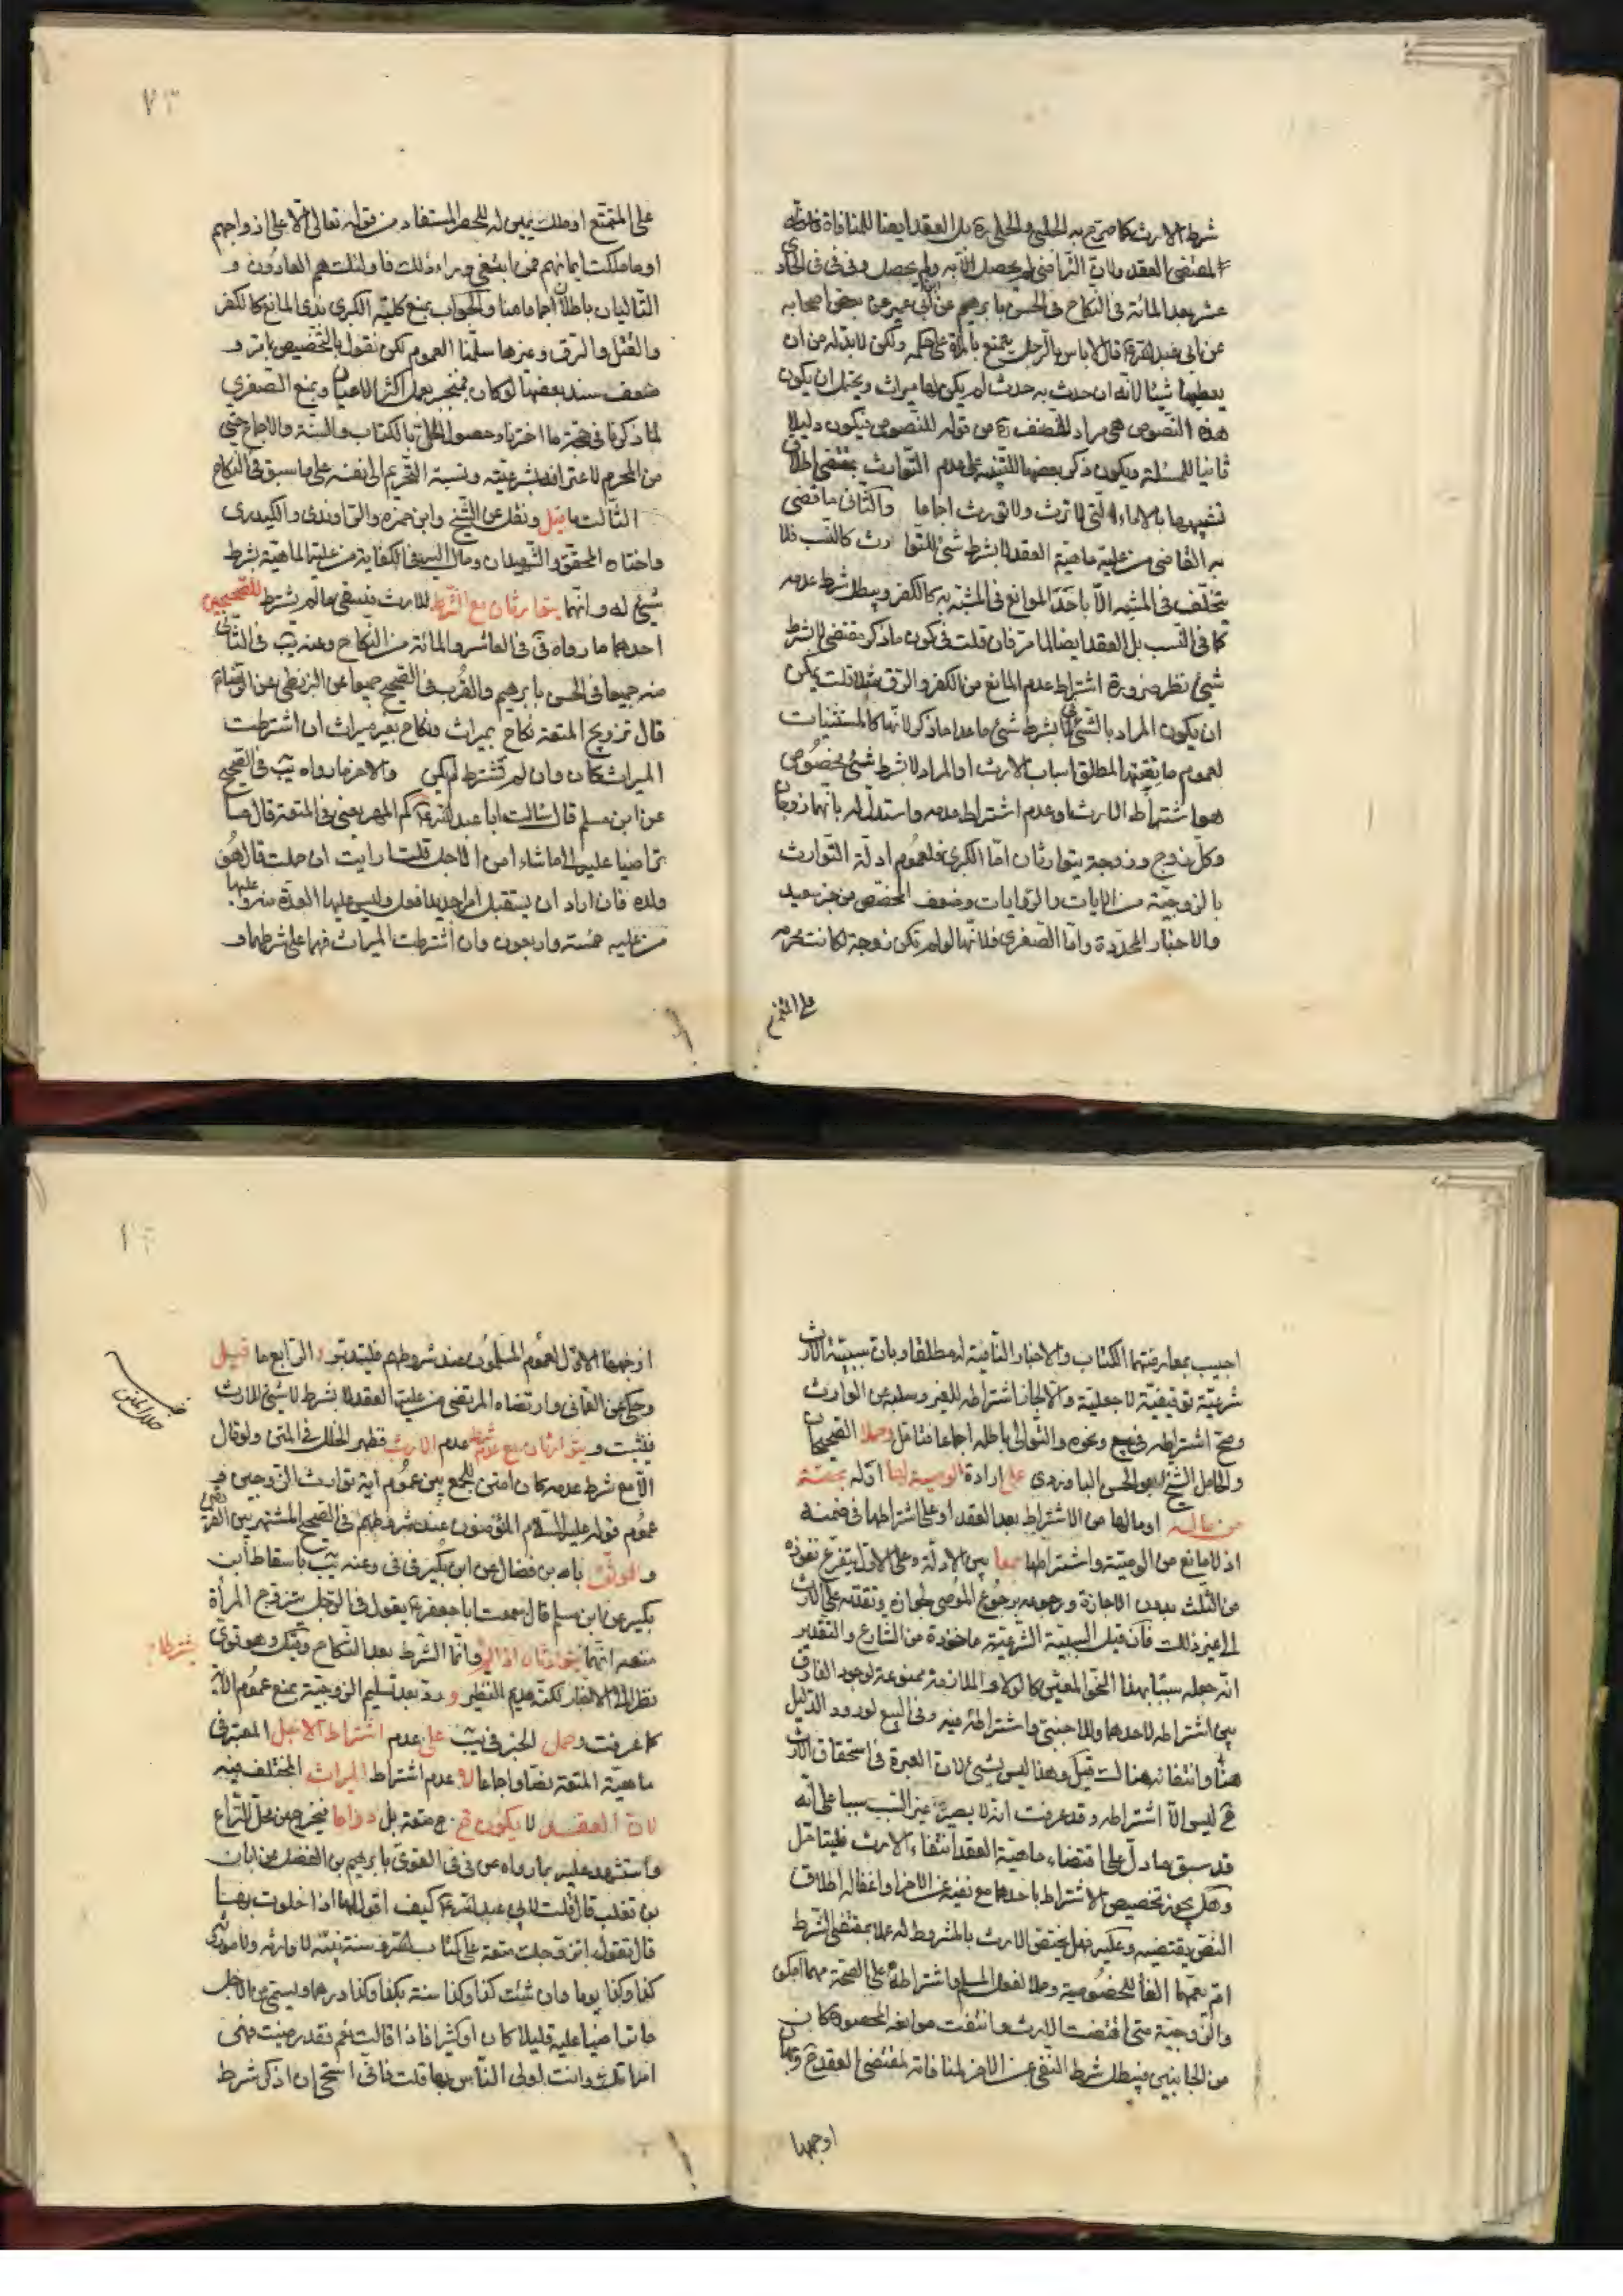 شرط الارث كما صرّح به الحلبي والحلي ره بل العقد ايضا للمنافاة
المقتضى العقد ولان التراضي لم يحصل الا به ولم يحصل وفى فى فى الحادى
عشر بعد المائة فى النكاح فى الحسن بابرهيم عن ابن ابي عمير عن بعض اصحابه
عن ابي عبد الله ع قال لا باس بالرجل يتمتع بالمراة على حكمه ولكن لا بد له من ان
يعطيها شيئا لانه ان حدث به حدث لم يكن لها ميراث ويحتمل ان يكون
هذه النصوص هى مراد المصنف ره من قوله للنصوص فيكون دليلا
ثانيا للمسئلة ويكون ذكر بعضها للتنبيه على عدم التوارث بمقتضى اطلاق
تشبيهها بالاماء التى لا ترث ولا تورث اجماعا والثانى ما قضى
به القاضى من علية ماهية العقد لا بشرط شئ للتوارث كالنسب فلا
يتخلف فى المشبه الا باحد الموانع فى المشبه به كالكفر ويبطل شرط عدمه
كما فى النسب بل العقد ايضا لما مر فان قلت فيكون ما ذكر مقتضى لا بشرط
شئ نظر ضرورة اشتراط عدم المانع من الكفر والرق مثلا قلت يمكن
ان يكون المراد بالشئ فى لا بشرط شئ ما عدا ما ذكر لانها كالمستثنيات
لعموم ما يقيد المطلق اسباب الارث او المراد لا بشرط شئ مخصوص
هو اشتراط الارث او عدم اشتراط عدمه واستدل له بانهما زوجان
وكل زوج وزوجة يتوارثان امّا الكبرى فلعموم ادلة التوارث
بالزوجية من الايات والروايات وضعف المخصص من خبر سعيد
والاخبار المجردة وامّا الصغرى فلانها لو لم تكن زوجة لكانت محرمه
على المتمتع
على المتمتع او ملك يمين له للحصر المستفاد من قوله تعالى الا على ازواجهم
او ما ملكت ايمانهم فمن ابتغى وراء ذلك فاولئك هم العادون و
التاليان باطلان اجماعا منا والجواب بمنع كلية الكبرى بذى المانع كالكفر
والقتل والرق وغيرها سلمنا العموم لكن نقول بالتخصيص بما تر و
ضعف سند بعضها لو كان منجبر بعمل اكثر الاعيان وبمنع الصغرى
لما ذكرنا فى حجة ما اخترناه وحصول الحل بالكتاب والسنة والاجماع حتى
من المحرم لاعترافه بشرعيته ونسبة التحريم الى نفسه على ما سبق فى النكاح
الثالث ما قيل ونقل عن الشيخ وابن حمزه والراوندى والكيدرى
واختاره المحقق والشهيدان ومال اليه فى الكفاية من علية الماهية بشرط
شئ له وانهما يتوارثان مع الشرط للارث فينتفى ما لم يشرط للصحيحين
احدهما ما رواه فى فى العاشر والمائة من النكاح وعنه يب فى الثانى
منه جميعا فى الحسن بابرهيم والقرب فى الصحيح جميعا عن البزنطى عن الرضا ع
قال تزويج المتعة نكاح بميراث ونكاح بغير ميراث ان اشترطت
الميراث كان وان لم تشترط لم يكن والاخر ما رواه يب فى الصحيح
عن ابن مسلم قال سالت ابا عبد الله ع كم المهر يعنى فى المتعة قال ما
تراضيا عليه الى ما شاء امن الاجل قلت ارايت ان حملت قال هُو
ولده فان اراد ان يستقبل امرا جديدا فعل وليس عليها العدة منه وعليها
من غيره خمسة واربعون وان اشترطت الميراث فهما على شرطهما و
اجيب بمعارضتهما الكتاب والاخبار النافية له مطلقا وبان سببية الارث
شرعية توقيفية لا جعلية والا لجاز اشتراطه للغير وسلبه من الوارث
وصح اشتراطه فى بيع ونحوه والتوالى باطله اجماعا فتامل وحملا الصحيحان
والحامل الشيخ ابو الحسن الباوردى على ارادة الوصية لها او له بحصة
من ماله او مالها من الاشتراط بعد العقد او على اشتراطها فى ضمنه
اذ لا مانع من الوصية واشتراطها جمعا بين الادلة وعلى الاول يتفرع نفوذه
من الثلث بدون الاجازة ورجوعه برجوع الموصى لجوازه وتقدمه على الارث
الى غير ذلك فان قيل السببية الشرعية ماخوذة من الشارع والتقدير
انه جعله سببا بهذا النحو المعين كالولاء والملازمة ممنوعة لوجود الفارق
بين اشتراطه لاحدهما وللاجنبى واشتراطه فيه وفى البيع لورود الدليل
هنا وانتفائه هناك قيل وهذا ليس بشئ لان العبرة فى استحقاق الارث
ح ليس الا اشتراطه وقد عرفت انه لا يصير غير النسب سببا على انه
قد سبق ما دل على اقتضاء ماهية العقد انتفاء الارث فليتامل
وهل يجوز تخصيص الاشتراط باحدهما مع نفيه عن الاخر او اغفاله اطلاق
النص يقتضيه وعليه فهل يختص الارث بالمشروط له عملا بمقتضى الشرط
ام يعمهما الغاء للخصوصية وحملا لفعل المسلم واشتراطه على الصحة مهما امكن
والزوجية متى اقتضت الارث وانتفت موانعه المحصورة كان
من الجانبين فيبطل شرط النفى عن الاخر لمنافاته لمقتضى العقد ح وجهان
اوجهها
اوجههما الاول لعموم المسلمون عند شروطهم فليتدبر و الرابع ما قيل
وحكى عن العمانى وارتضاه المرتضى من علية العقد لا بشرط لا شئ للارث
فيثبت و يتوارثان مع عدم شرط عدم الارث فظهر الخلل فى المتن ولو قال
الا مع شرط عدمه كان امتن للجمع بين عموم اية توارث الزوجين و
عموم قوله عليه السلام المؤمنون عند شروطهم فى الصحيح المشتهر بين الفريقين
و الموثق بابن فضال عن ابن بكير فى فى وعنه يب باسقاط ابن
بكير عن ابن مسلم قال سمعت ابا جعفر ع يقول فى الرجل يتزوج المرأة
متعه انهما يتوارثان اذا لم يشترطا وانما الشرط بعد النكاح وهو قوى
نظرا الى الاخبار لكنه عديم النظير و رد بعد تسليم الزوجية بمنع عموم الاية
كما عرفت و حمل الخبر فى يب على عدم اشتراط الاجل المعتبر فى
ماهية المتعة نصا واجماعا لا عدم اشتراط الميراث المختلف فيه
لان العقد لا يكون ح متعة بل دواما فيخرج من محل النزاع
واستشهد عليه بما رواه عن فى فى القوى بابرهيم بن الفضل عن ابان
بن تغلب قال قلت لابى عبد الله ع كيف اقول لها اذا خلوت بها
قال تقول اتزوجك متعة على كتاب الله وسنة نبيه لا وارثه ولا موروثه
كذا وكذا يوما وان شئت كذا وكذا سنة بكذا وكذا درهما ويسمى من الاجر
ما تراضيا عليه قليلا كان او كثيرا فاذا قالت نعم فقد رضيت فهى
امراتك وانت اولى الناس بها قلت فانى استحى ان اذكر شرط